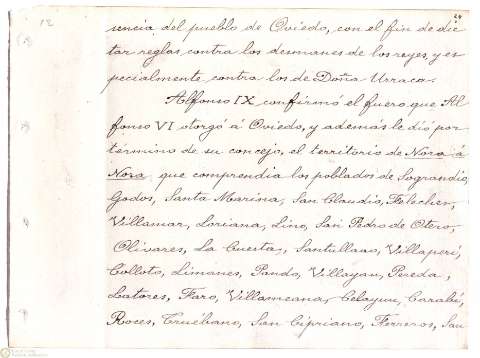 12
24
sencia del pueblo de Oviedo, con el fin de dic
tar reglas contra los desmanes de los reyes, y es
pecialmente contra los de Doña Urraca.
Alfonso IX confirmó el fuero que Al
fonso VI otorgó á Oviedo, y además le dió por
termino de su concejo, el territorio de Nora á
Nora, que comprendia los poblados de Sograndio,
Godos, Santa Marina, San Claudio, Feleches,
Villamar, Loriana, Lino, San Pedro de Otero,
Olivares, La Cuesta, Santullano, Villaperi,
Colloto, Limanes, Pando, Villayan, Pereda,
Latores, Faro, Villameana, Celayun, Carabú,
Roces, Truébano, San Cipriano, Ferreros, San